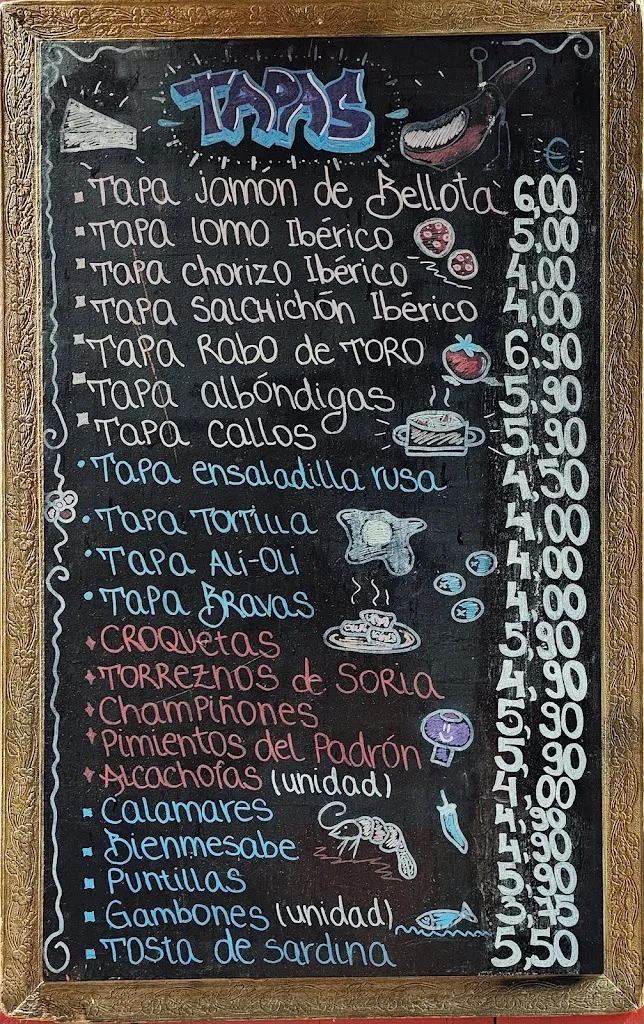 TAPAS
€
TAPA Jamón de Bellota 6,00
TAPA lomo Ibérico 5,00
TAPA chorizo Ibérico 4,00
TAPA SALCHICHÓN Ibérico 4,00
TAPA RABO de TORO 6,90
TAPA albóndigas 5,90
TAPA callos 5,90
TAPA ensaladilla rusa 4,50
TAPA TORTILLA 4,00
TAPA ALI-OLI 4,00
TAPA BRAVAS 4,00
CROQUETAS 5,90
TORREZNOS de SORIA 4,90
Champiñones 5,90
Pimientos del Padrón 5,90
Alcachofas (unidad) 4,00
Calamares 4,90
Bienmesabe 4,90
Puntillas 5,90
Gambones (unidad)
Tosta de sardina 5,50